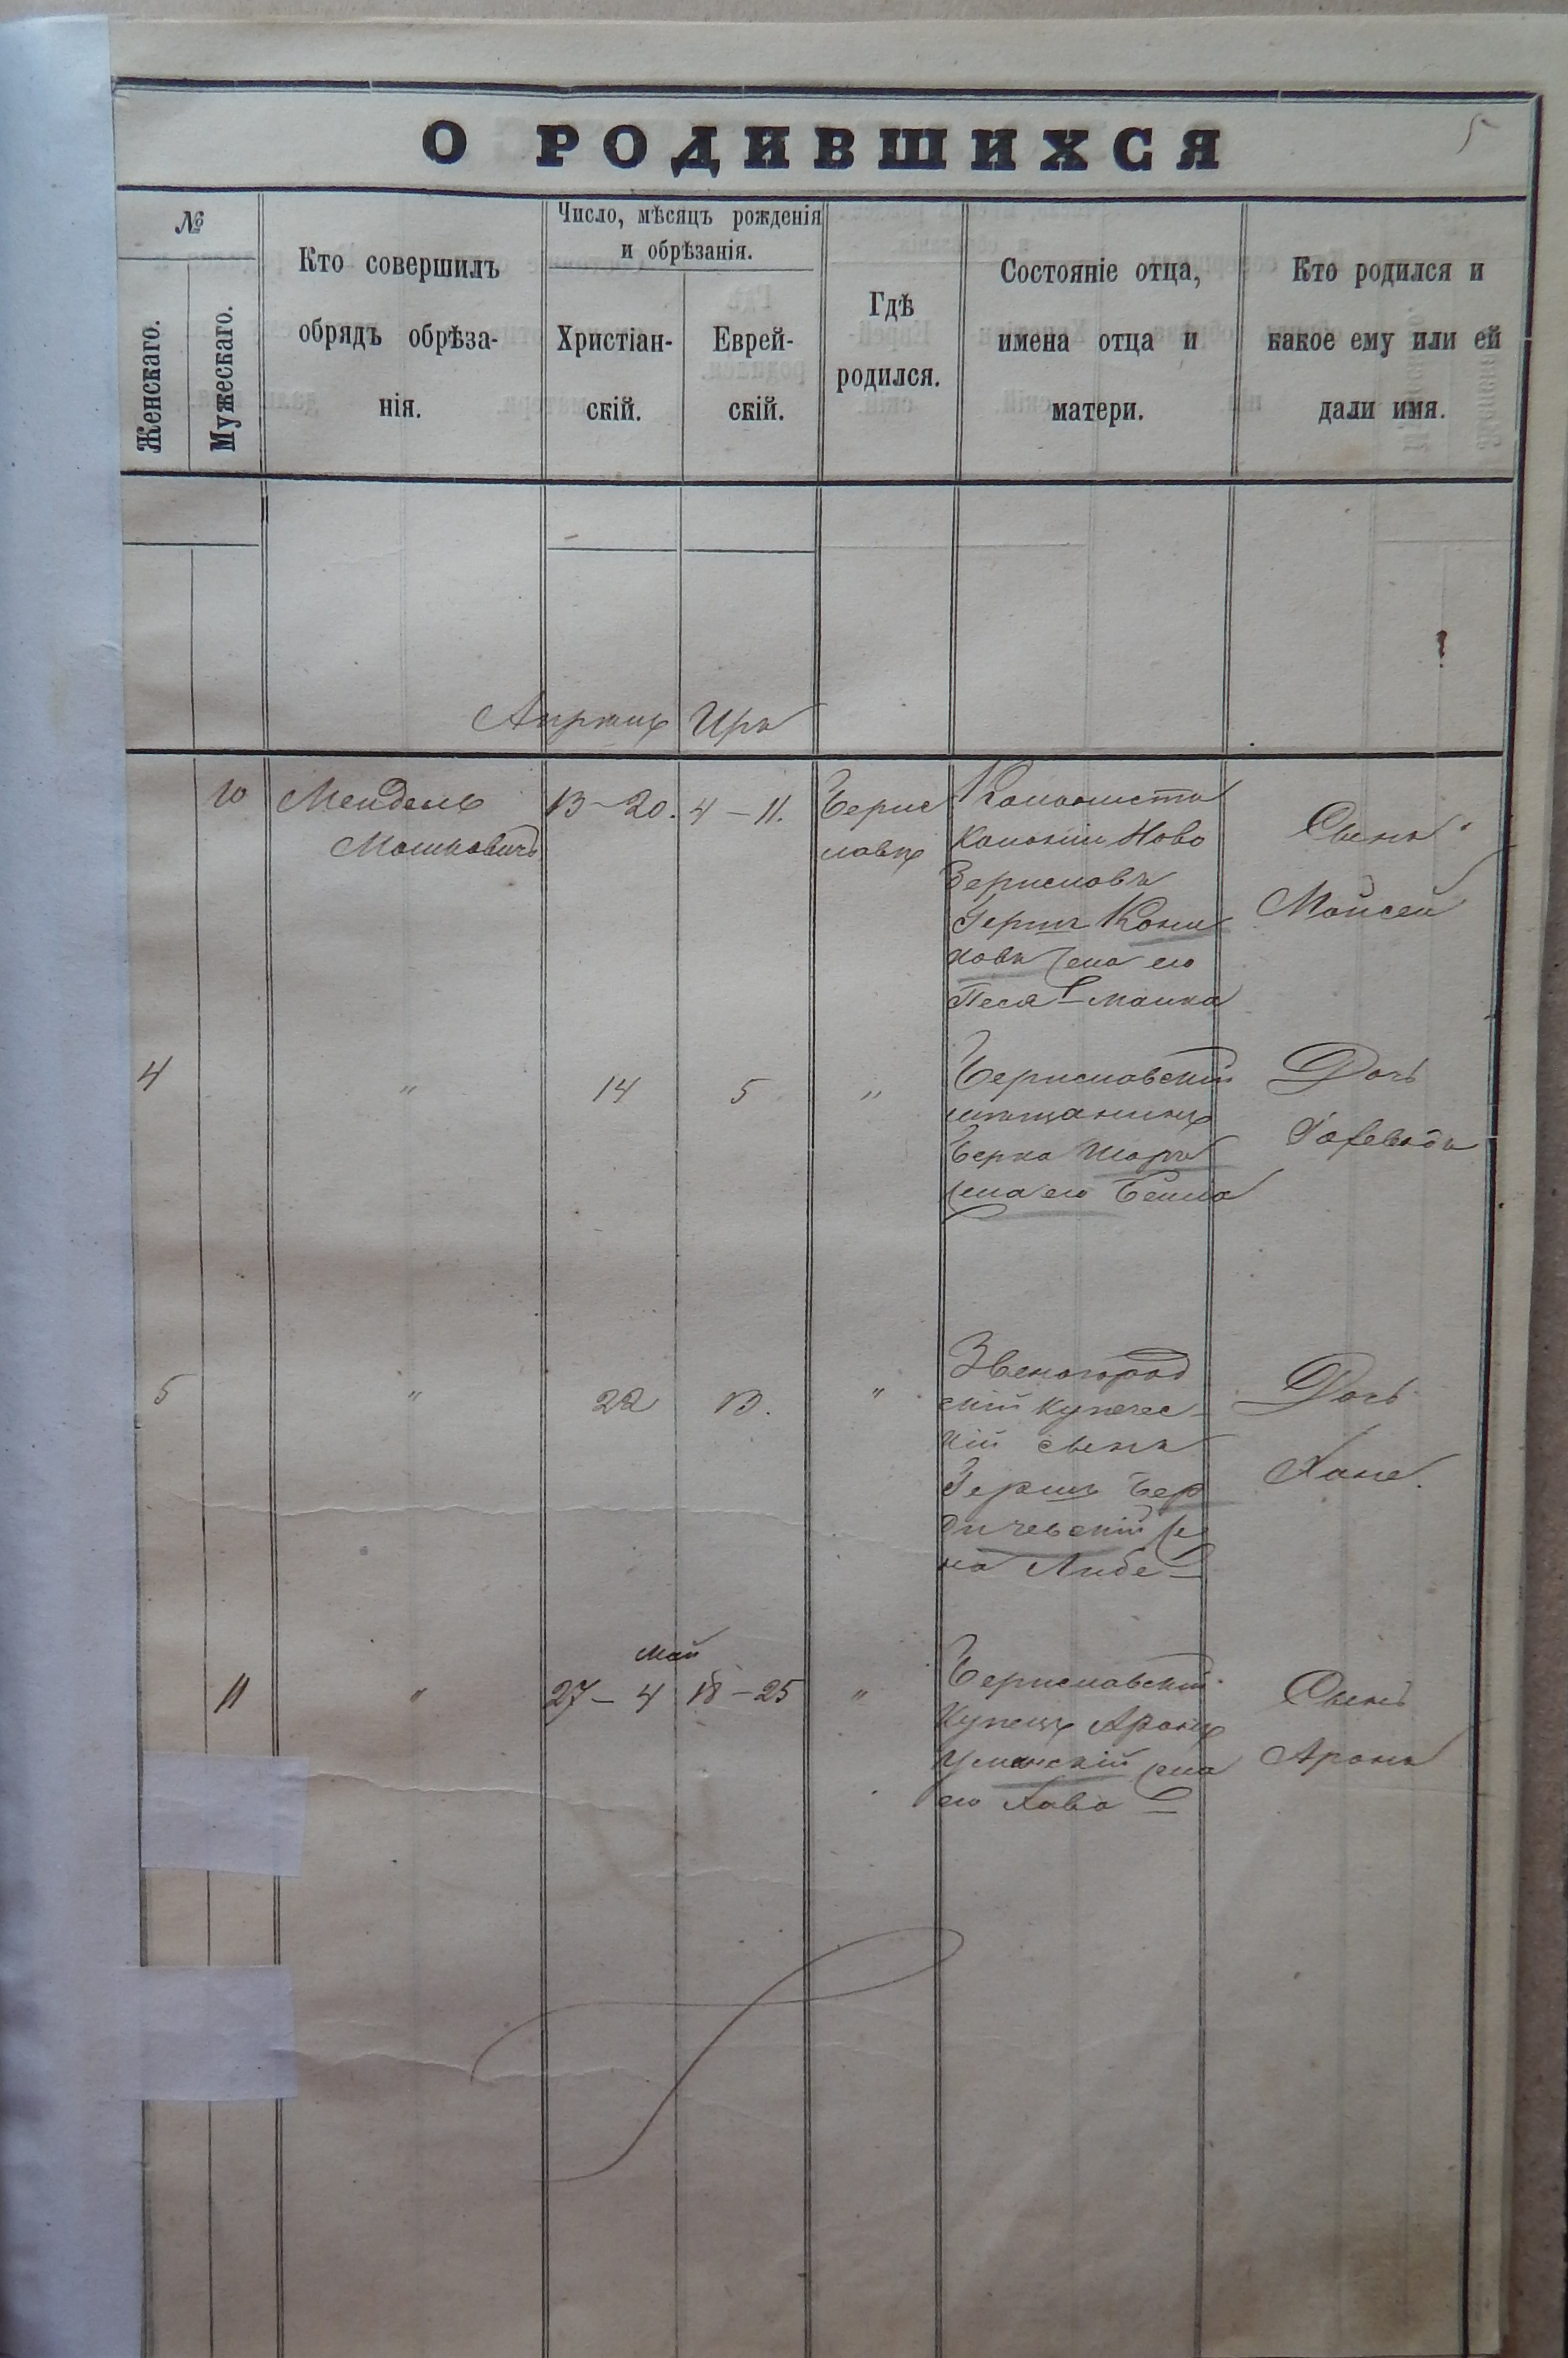 О РОДИВШИХСЯ
5
№
Женскаго.
Мужескаго.
Кто совершилъ
обрядъ обрѣза-
нія.
Число, мѣсяцъ рожденія
и обрѣзанія.
Христіан-
скій.
Еврей-
скій.
Гдѣ
родился.
Состояніе отца,
имена отца и
матери.
Кто родился и
какое ему или ей
дали имя.
Апрель Иръ
10
Мендель
Мошковичъ
13-20.
4-11.
Берис
лавъ
Колонистъ
колоніи Ново
Бериславъ
Гершъ
жена его
Песя Малка
Сынъ
Мойсей
4
"
14
5
"
Бериславскій
мѣщанинъ
Берко Шоръ
жена его Бейла
Дочь
5
"
22
13.
"
Звеногород
скій купечес-
кій сынъ
Гершъ Бер
дичевскій же
на Либе
Дочь
Хане.
11
"
май
27-4
18-25
"
Бериславскій
купецъ Аронъ
Уманскій жена
его Хава
Сынъ
Аронъ